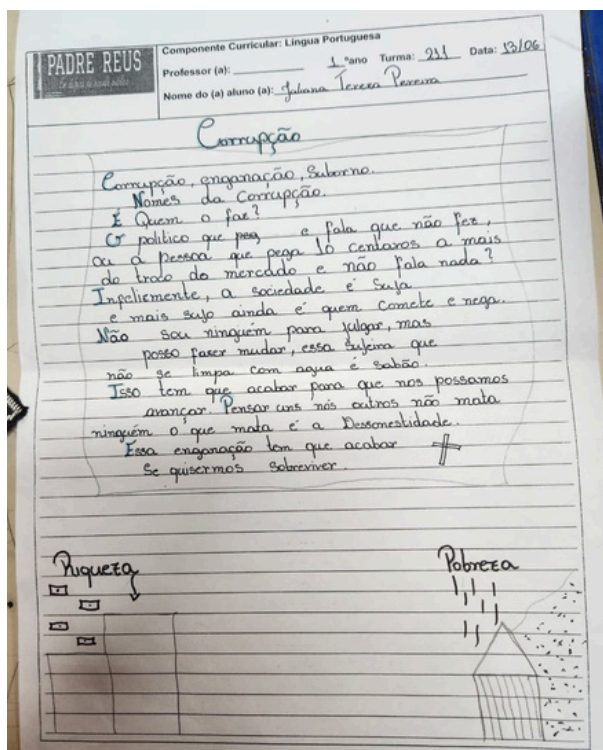 PADRE REUS
Componente Curricular: Língua Portuguesa
Professor (a): 1 °ano Turma: 211 Data: 13/06
Nome do (a) aluno (a): Juliana Tereza Pereira
Corrupção
Corrupção, enganação, Suborno.
Nomes da Corrupção.
É Quem o faz?
O político que peg e fala que não fez,
ou a pessoa que pega 10 centavos a mais
do troco do mercado e não fala nada?
Infeliemente, a sociedade é suja
e mais sujo ainda é quem comete e nega.
Não sou ninguém para julgar, mas
posso faser mudar, essa sujeira que
não se limpa com agua é sabão.
Isso tem que acabar para que nos possamos
avançar. Pensar uns nós outros não mata
ninguém o que mata é a Dessonestidade.
Essa enganação tem que acabar
Se quisermos sobreviver.
Riqueza
Pobreza